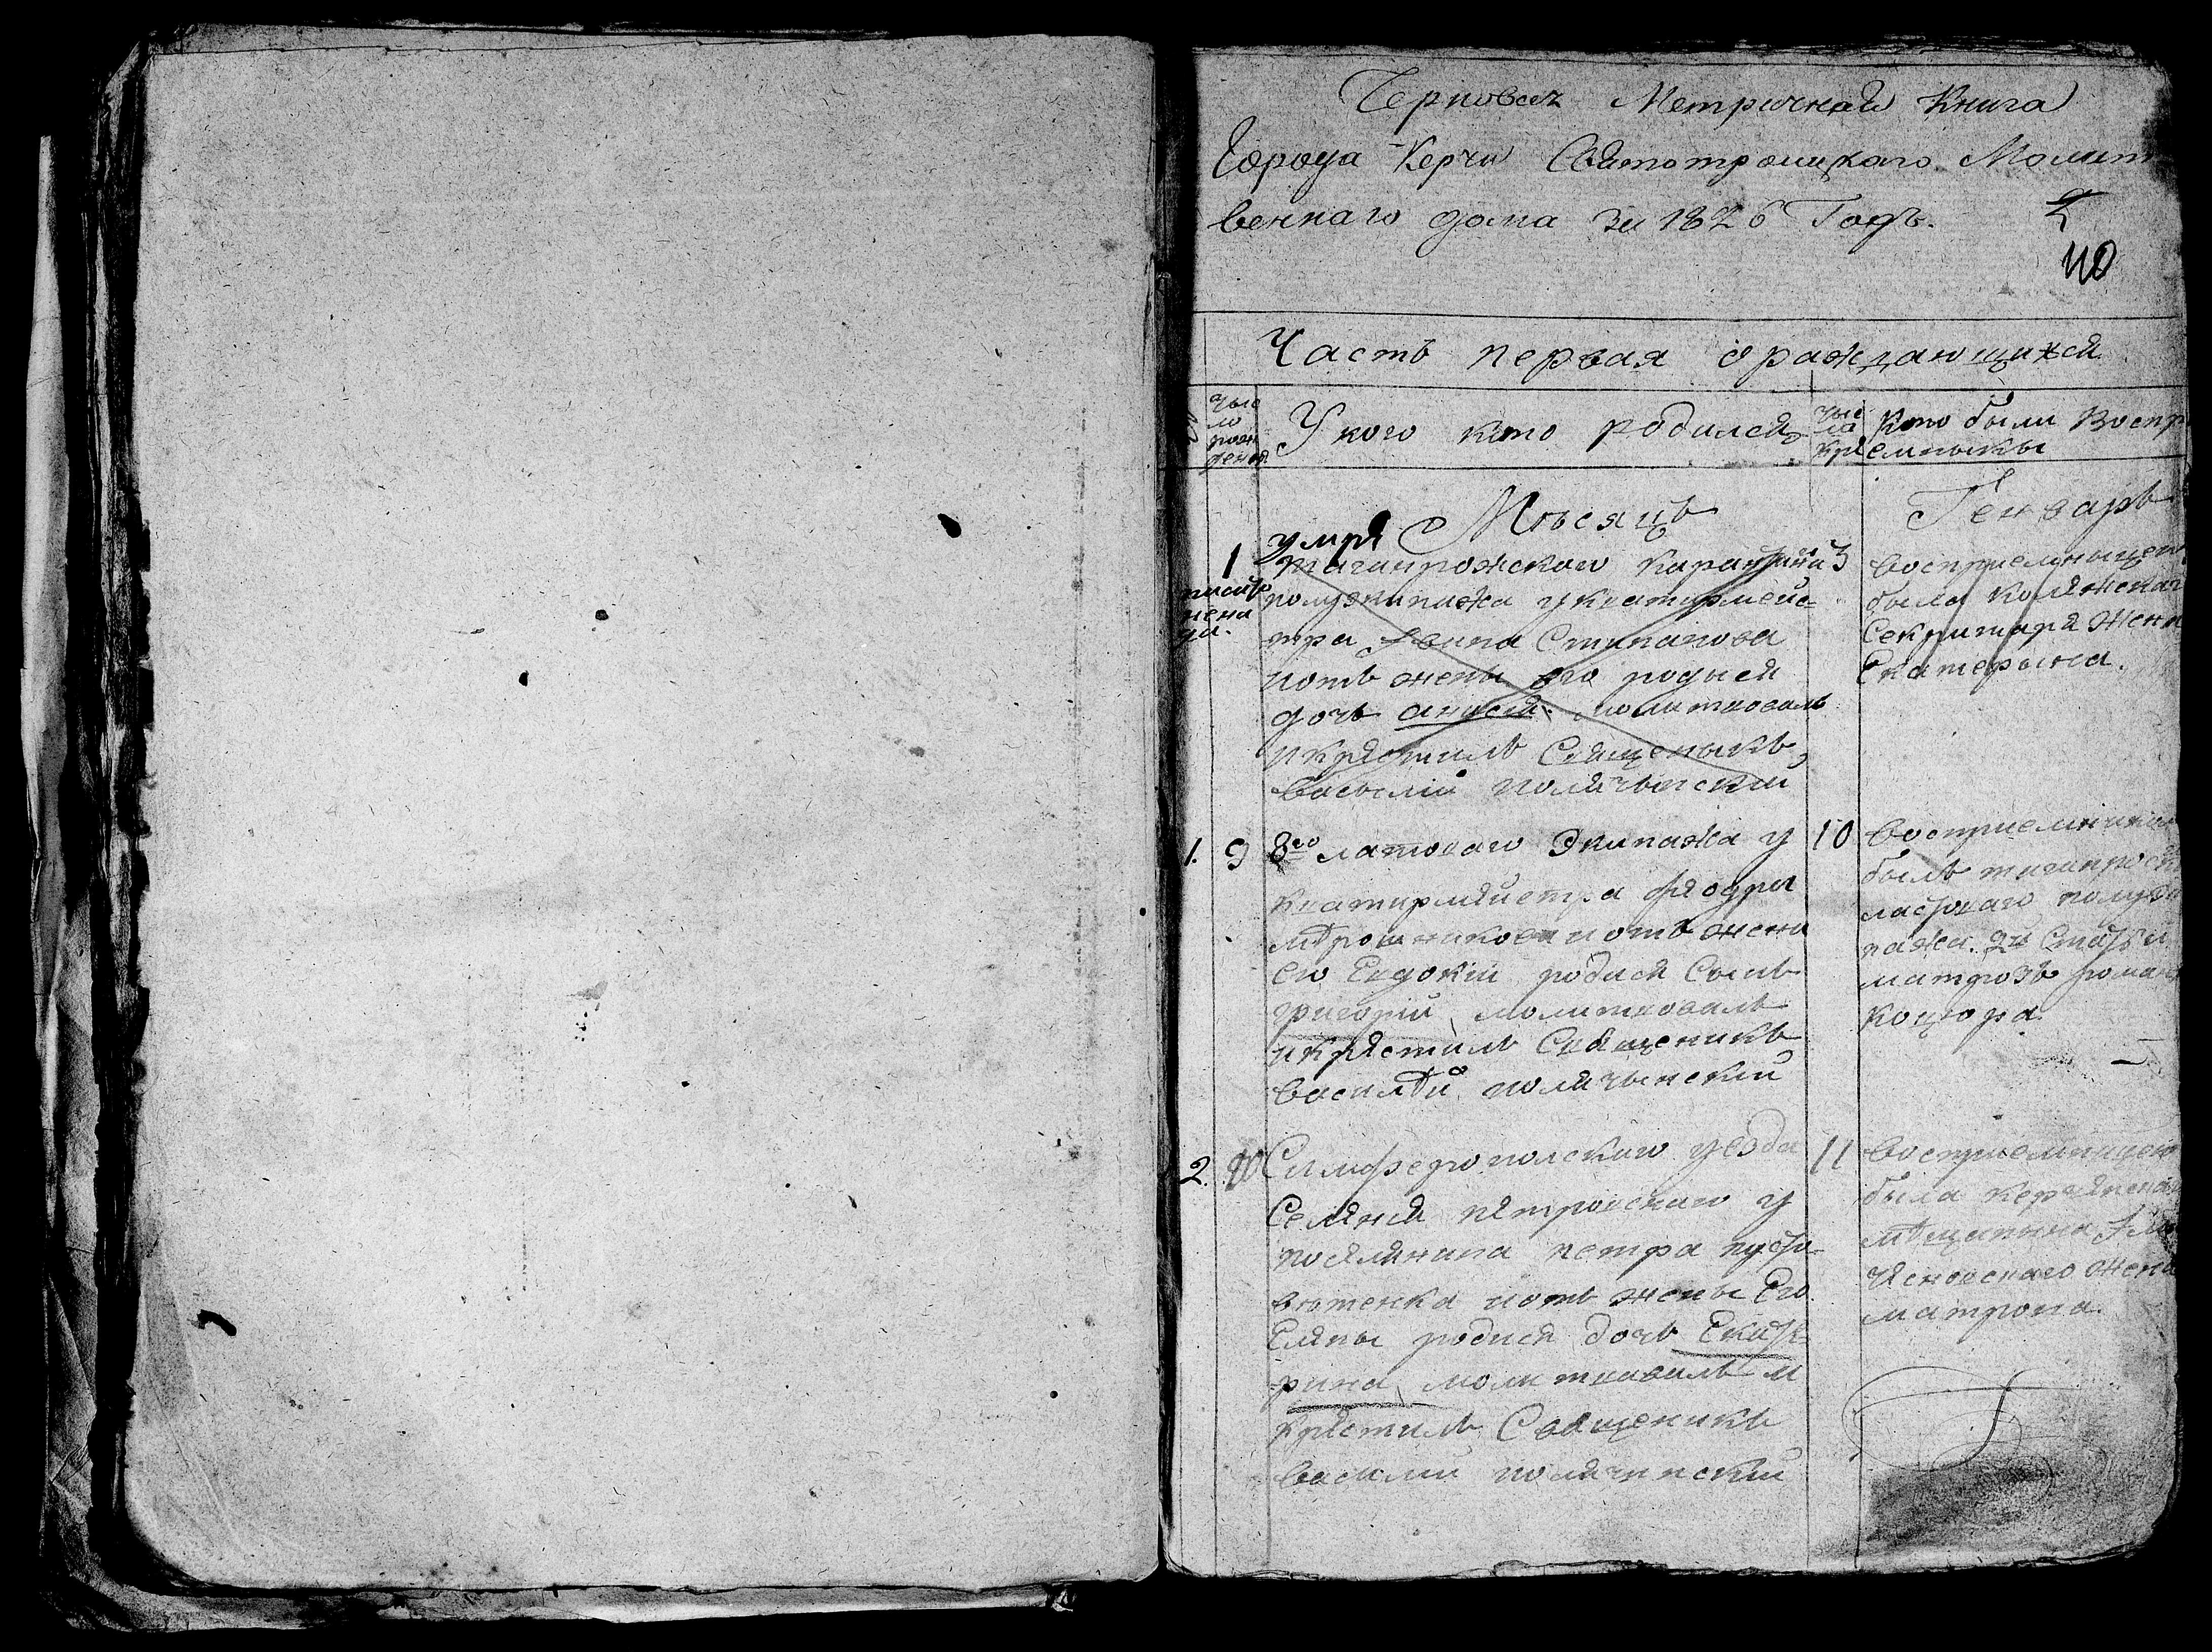 Черновая Метричная Книга
Города Керчи Святотроицкаго Молит
веннаго дома за 1826 Годъ.
40
Часть первая о раждающихся
чис
ло
рож
дения
У кого кто родился
чис
ла
кре
Кто были Воспр
емныкы
Мѣсяцъ
Генварь
умря
1
таганрожскои карантина
полуэкипажа у кватырмейс=
тра Стипанова
иотъ жены его родыся
дочь анисия молитвовалъ
икрястилъ Священыкъ
васылій полячынский
3
восприемныцею
была
Секритаря Жена
Екатерына.
1.
9
8го ластоваго Экипажа у
кватирмяйстра фяодра
мѣрошникова иотъ жены
его Евдокіи родися Сынъ
григорій молитвовалъ
икрястилъ Священикъ
василѣй полячынский
10
восприемникомъ
былъ таганрож
ластоваго полуэки
пажа. 2й Статьи
матрозъ роман
коцюра
2.
10
Симферополскаго уезда
Селяния пятровскаго у
посялянина петра пусто
вютенка иотъ жены Его
Еляны родися дочь Екате
рина молитвовалъ и
крястилъ Священикъ
василий полячинский
11
восприемницею
была керчянскаго
мѣщанина
жена
матрона.